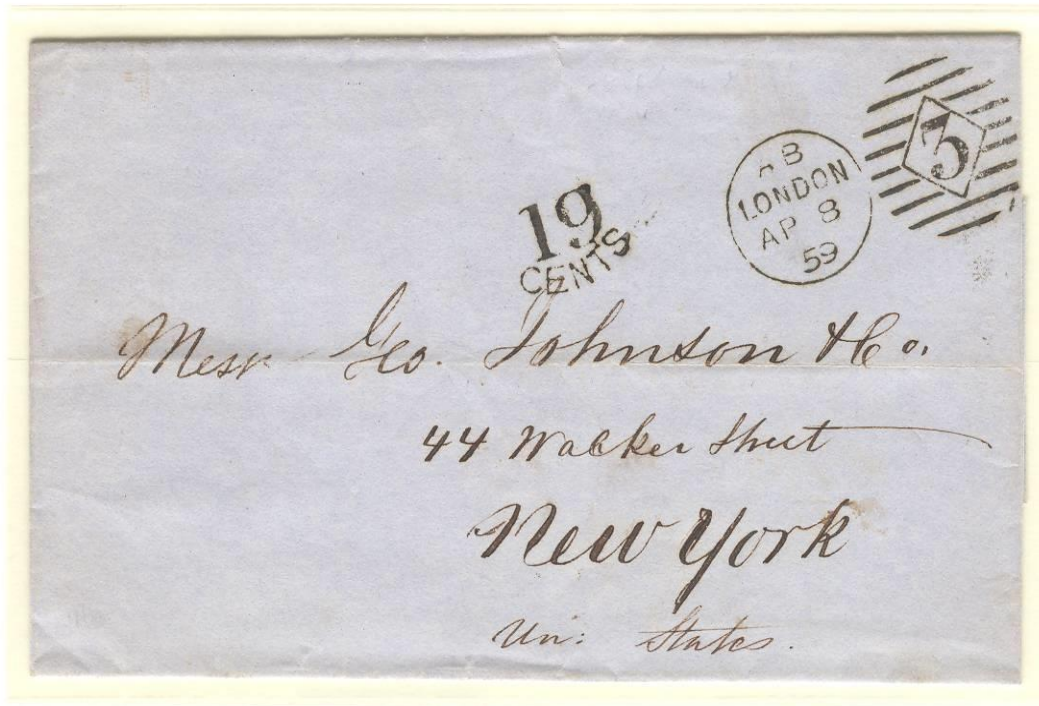 3
AB
LONDON
AP 8
59
19
CENTS
Messr Geo. Johnson & Co.
44 Walker Street
New York
Un: States.